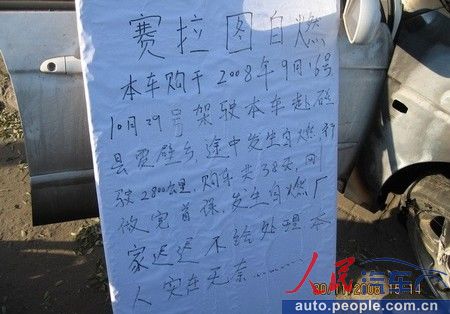 赛拉图自燃
本车购于2008年9月16号
10月29号架驶本车赴磁
县贾壁乡，途中发生自燃行
驶2800公里，购车共38天，刚
做完首保，发生自燃厂
家迟迟不给处理本
人实在无奈………
人民汽车
30/11/2008 15:14
auto.people.com.cn